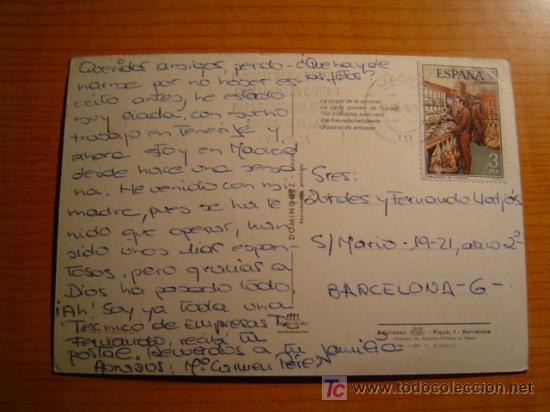 Queridos amigos perdo-
narme por no haber es-
crito antes, he estado
muy liada, con mucho
trabajo en Tenerife y
ahora estoy en Madrid
desde hace una sema-
na. He venido con mi
madre, pues se ha te-
nido que operar, han
sido unos días espan-
tosos, pero gracias a
Dios ha pasado todo.
¡Ah! Soy ya toda una
Técnico de Empresas T.
Fernando, recibí tu
postal. Recuerdos a tu familia
Abrazos, Mª Carmen Pérez
¿Que hay de
las fotos?
La postal de la amistad
La carte postale de l'amitié
The friendship post card
Die freundschaftskarte
O postal da amizade
ESPAÑA
CORREOS
3
PTA
DOMINGUEZ
Sres:
Lourdes y Fernando
S/ Mario - 19-21, atico 2º
BARCELONA - 6 -
Ediciones
Piqué, 1 - Barcelona
TC www.todocoleccion.net